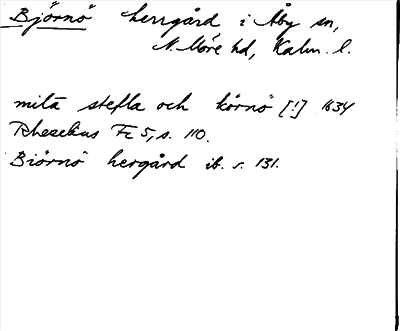 Björnö herrgård i Åby sn,
N. Möre hd, Kalm. l.
mitä stefla och körnö [!] 1634
Rhezelius Fc 5, s. 110.
Biörnö hergård ib. s. 131.